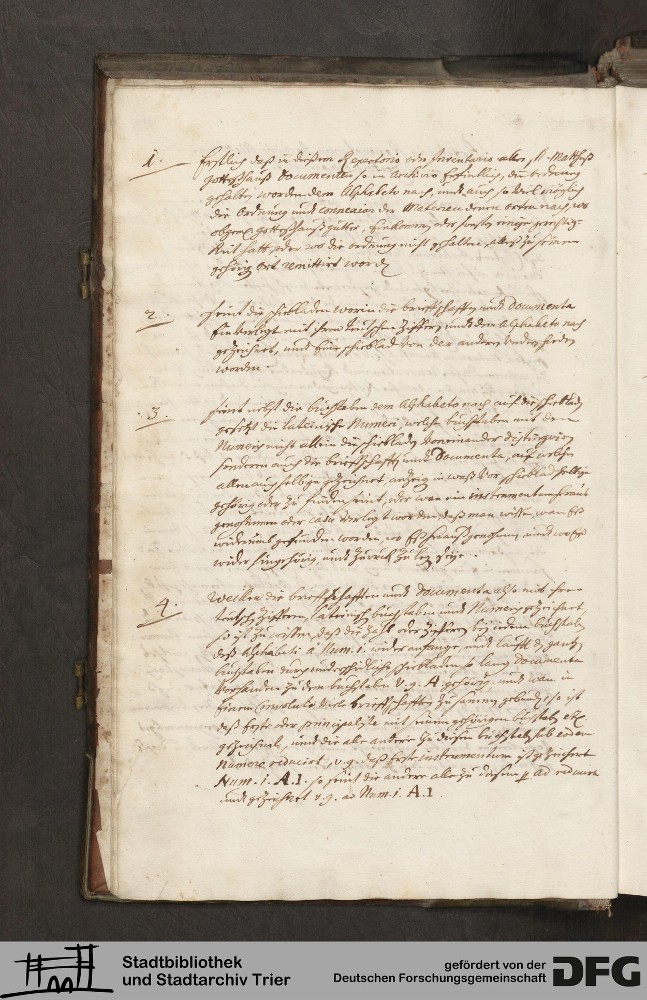 1. Erstlich daß in dießem Repertorio oder Inventario aller St. Matheiß
gotteßhauß Documenten so in Archivio befindlich, die ordnung
gehalten worden dem Alphabeto nach, und auch so viel möglich
die ordnung und connexion der Materien denen orten nach, wo
obgem. gotteßhauß gütter, Einkommen, oder sonsten einige gerechtig-
keit hatt, oder wo die ordnung nicht gehalten, alles zu seinem
gehörig ort remittirt worden
2. seint die schiebladen worin die brieffschafften und Documenta
hinverlegt mit ihren teutschen Ziffern, und dem Alphabeto nach
gezeichnet, und Eine schieblad von der anderen underscheden
worden.
3. seint nebst die buchstaben dem Alphabeto nach auff die schieblad
gesetzt die lateinische Numeri, welche buchstaben mit den
Numeris nicht allein die schiebladen voneinander distinguiren
sonderen auch die brieffschafften und Documenta, auf welche
allen auch selbige gezeichnet, anzeig in waß vor schieblad selbige
gehörig oder zu finden seint, oder wan ein instrumentum herauß
genohmmen oder casu verlegt worden, daß man wisse, wan Eß
widerumb gefunden worden, wo Eß herauß genohmen, und wo Eß
wider hingehörig, und zuruck zu legen seye.
4. Weilen die brieffschafften und Documenta also mit ihren
teutschen Zifferen, lateinisch buchstaben und Numeris gezeichnet,
so ist zu wissen, daß die Zahl oder Ziffer bey jedem buchstaben
deß Alphabeti a Num. 1. wider anfange, und laufft den gantzen
buchstaben durch underschidliche schiebladen so lang Documenta
vorhanden zu dem buchstaben v. g. A gehörig, und wan in
Einem Convolut viele brieffschafften zu samen gebunden, so ist
daß Erste oder principaliste mit seinem gehörigen buchstaben etc
gezeichnet, und die alle andere zu diesem buchstaben sub eodem
Numero reducirt, v. g. daß Erste instrumentum ist gezeichnet
Num. 1. A. 1. so seint die andere alle zu diesem p ad reducirt
und gezeichnet v. g. ad Num. 1. A. 1.
Stadtbibliothek
und Stadtarchiv Trier
gefördert von der
Deutschen Forschungsgemeinschaft
DFG